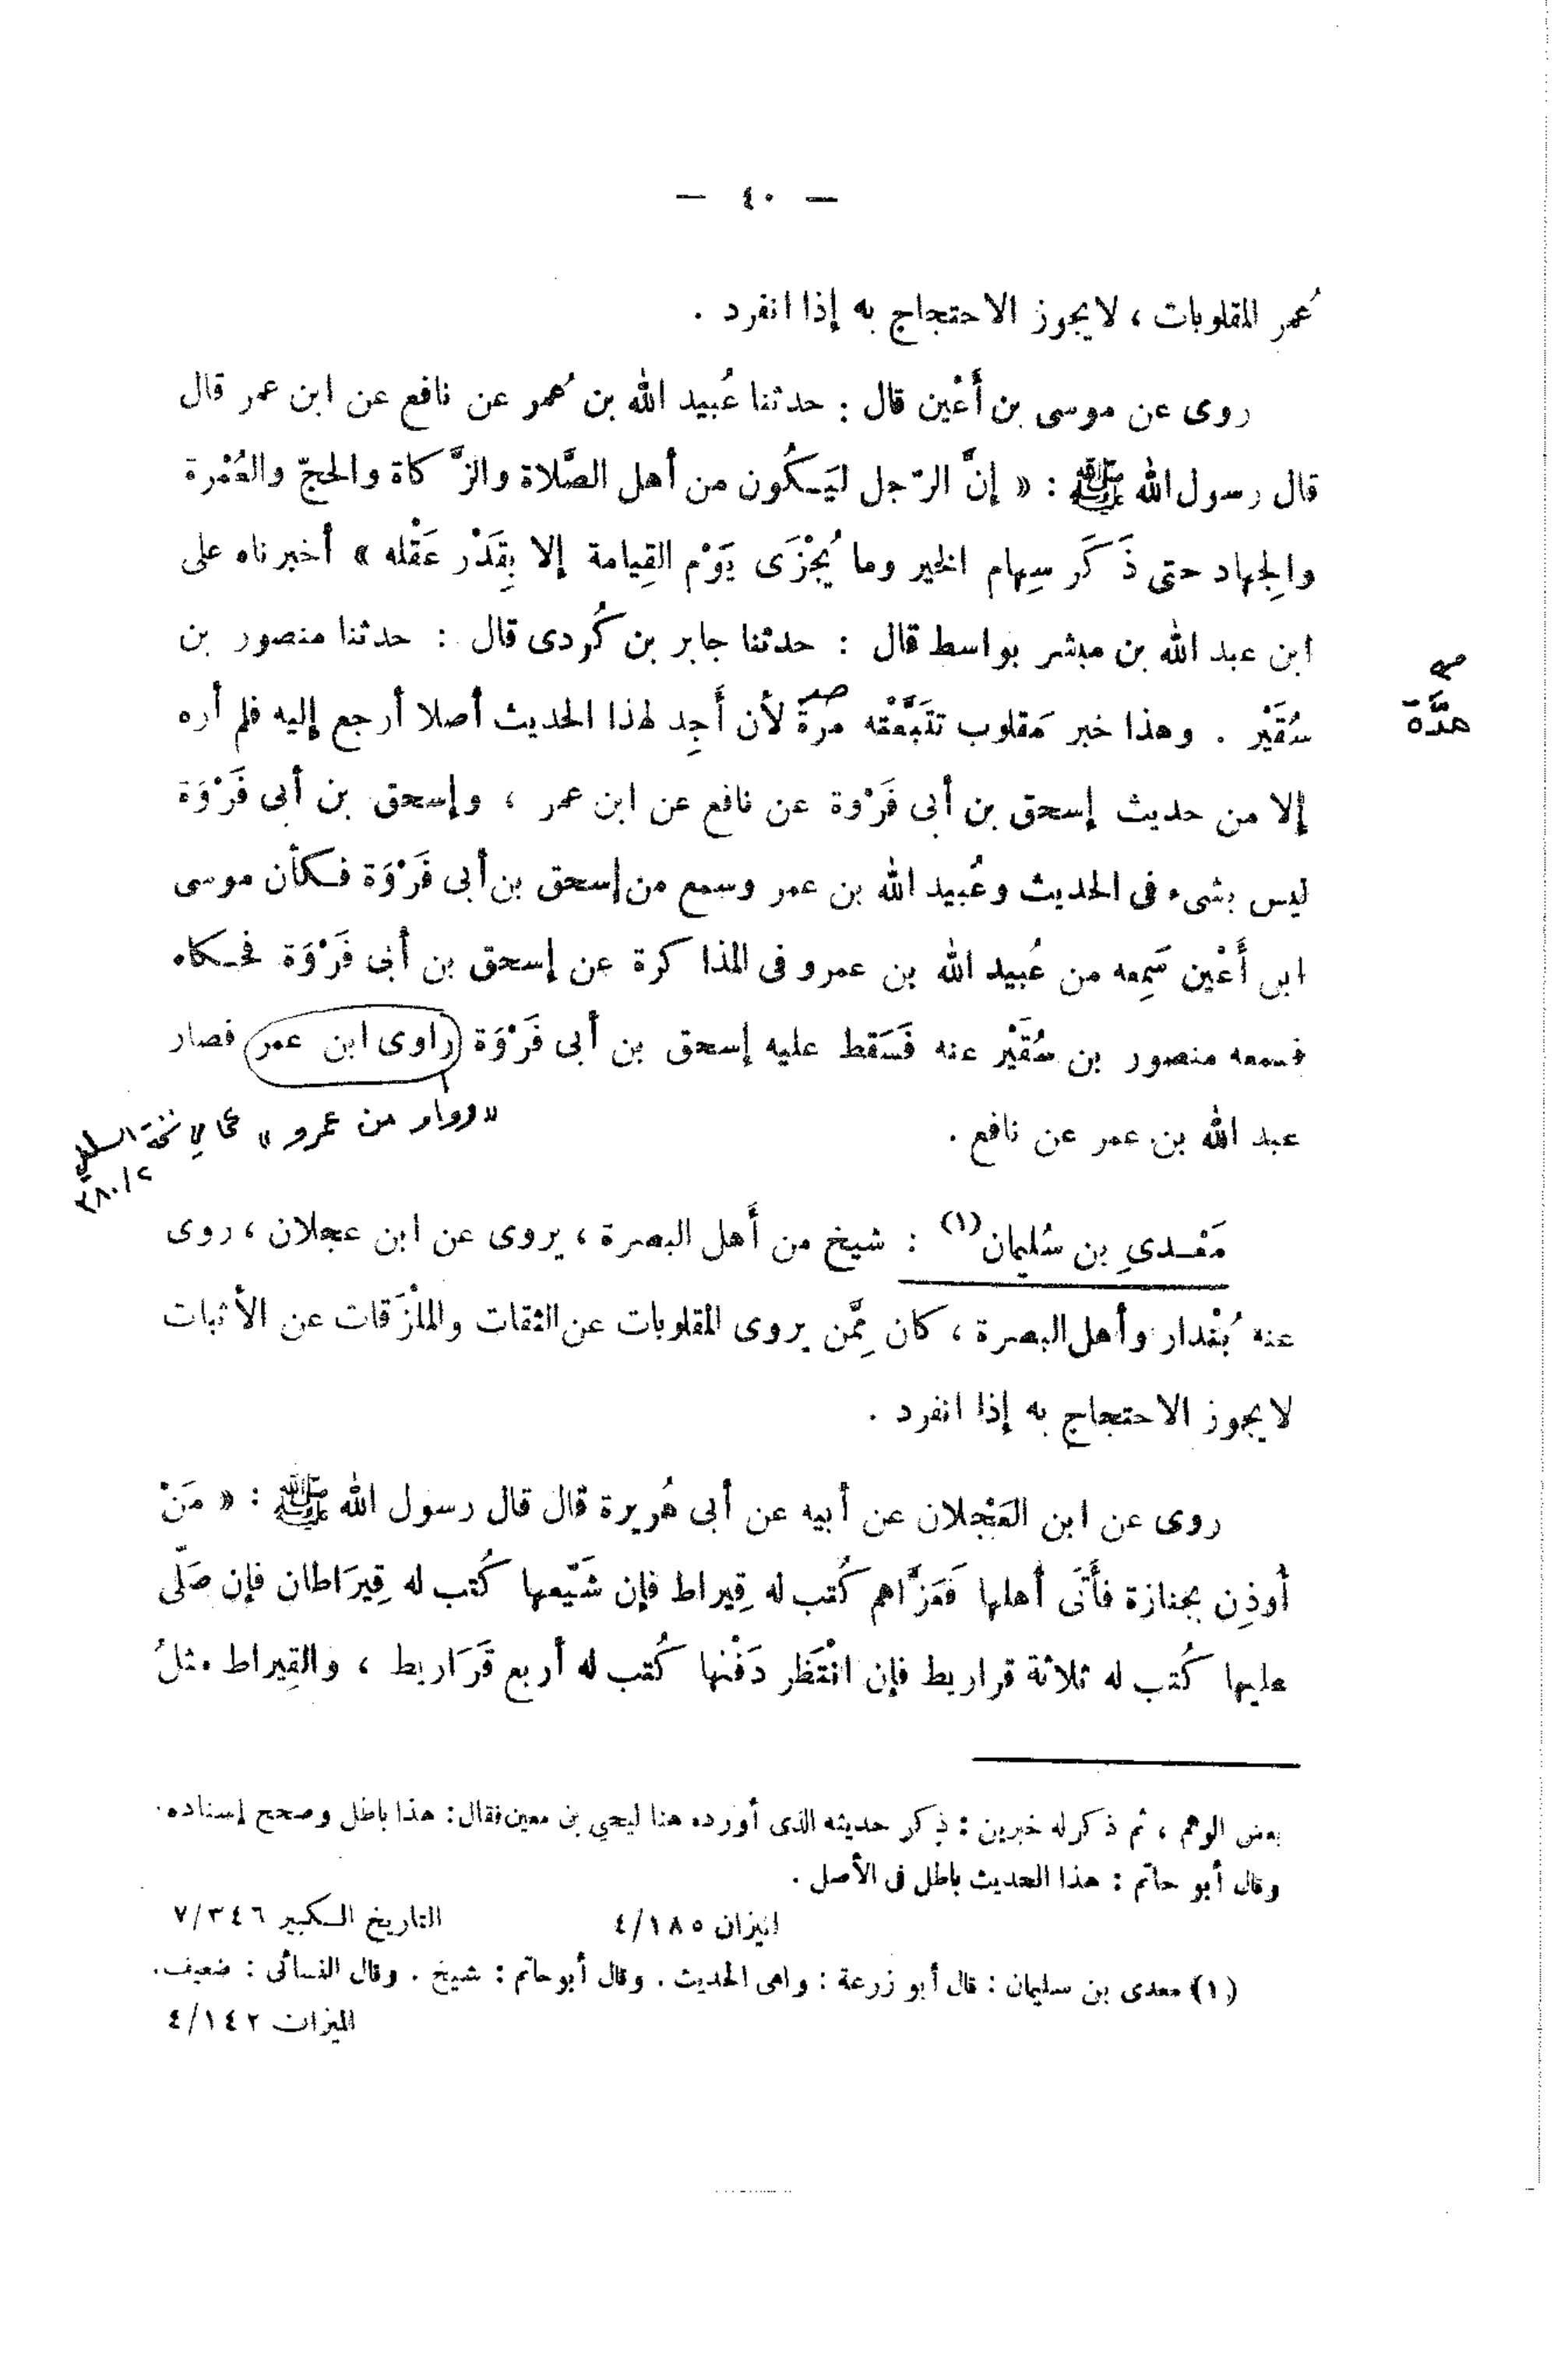 — ٤٠ —
عُمر المقلوبات ، لا يجوز الاحتجاج به إذا انفرد .
روى عن موسى بن أَعْين قال : حدثنا عُبيد الله بن عُمر عن نافع عن ابن عمر قال
قال رسول الله ﷺ : « إنَّ الرّجل ليَكُون من أهل الصَّلاة والزَّكاة والحجّ والعُمْرة
والجِهاد حتى ذَكَر سِهام الخير وما يُجْزَى يَوْم القِيامة إلا بِقَدْر عَقْله » أخبرناه على
ابن عبد الله بن مبشر بواسط قال : حدثنا جابر بن كُردى قال : حدثنا منصور بن
سُقَيْر . وهذا خبر مَقلوب تتَبَّعْته مَرةً لأن أَجِد لهذا الحديث أصلا أرجع إليه فلم أره
صـ
مدَّة
إلا من حديث إسحق بن أبى فَرْوة عن نافع عن ابن عمر ، وإسحق بن أبى فَرْوَة
ليس بشىء فى الحديث وعُبيد الله بن عمر وسمع من إسحق بن أبى فَرْوَة فكأن موسى
ابى أَعْين سَمِعه من عُبيد الله بن عمرو فى المذاكرة عن إسحق بن أبى فَرْوَة فحكاه
فسمعه منصور بن سُقَيْر عنه فَسَقط عليه إسحق بن أبى فَرْوَة راوى ابن عمر فصار
عبد الله بن عمر عن نافع .
« وواو من عمرو » كما في نسخة السلمي
مَعْـدىِ بن سُليمان(١) : شيخ من أَهل البصرة ، يروى عن ابن عجلان ، روى
عنه بُنْدار وأهل البصرة ، كان مِمَّن يروى المقلوبات عن الثقات والملْزَقات عن الأثبات
لا يجوز الاحتجاج به إذا انفرد .
روى عن ابن العَجْلان عن أبيه عن أبى هُريرة قال قال رسول الله ﷺ : « مَنْ
أُوذِن بجنازة فأَتَى أهلها فَعَزَّاهم كُتب له قِيراط فإن شَيّعها كُتب له قِيرَاطان فإن صَلّى
عليها كُتب له ثلاثة قراريط فإن انْتَظر دَفْنها كُتب له أربع قَرَاريط ، والقِيراط مثلُ
بعض الوهم ، ثم ذكر له خبرين : ذكر حديثه الذى أورده هنا ليحي بن معين فقال : هذا باطل وصحح إسناده .
وقال أبو حاتم : هذا الحديث باطل فى الأصل .
الميزان ٤/١٨٥ التاريخ الكبير ٧/٣٤٦
(١) معدى بن سليمان : قال أبو زرعة : واهى الحديث . وقال أبو حاتم : شيخ . وقال النسائى : ضعيف .
الميزان ٤/١٤٢